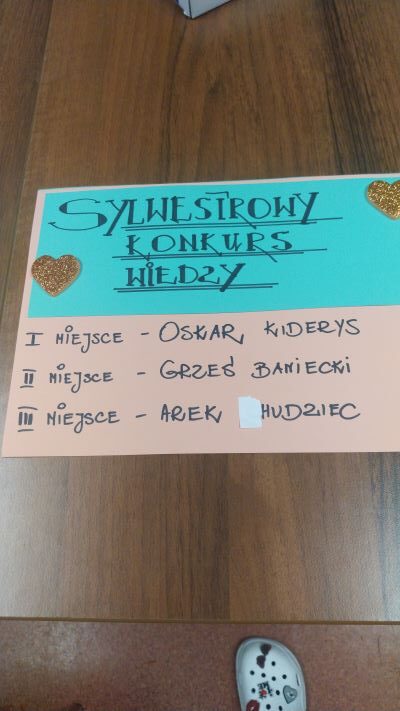 SYLWESTROWY
KONKURS
WIEDZY
I MIEJSCE - OSKAR KIDERYS
II MIEJSCE - GRZEŚ BANIECKI
III MIEJSCE - AREK HUDZIEC